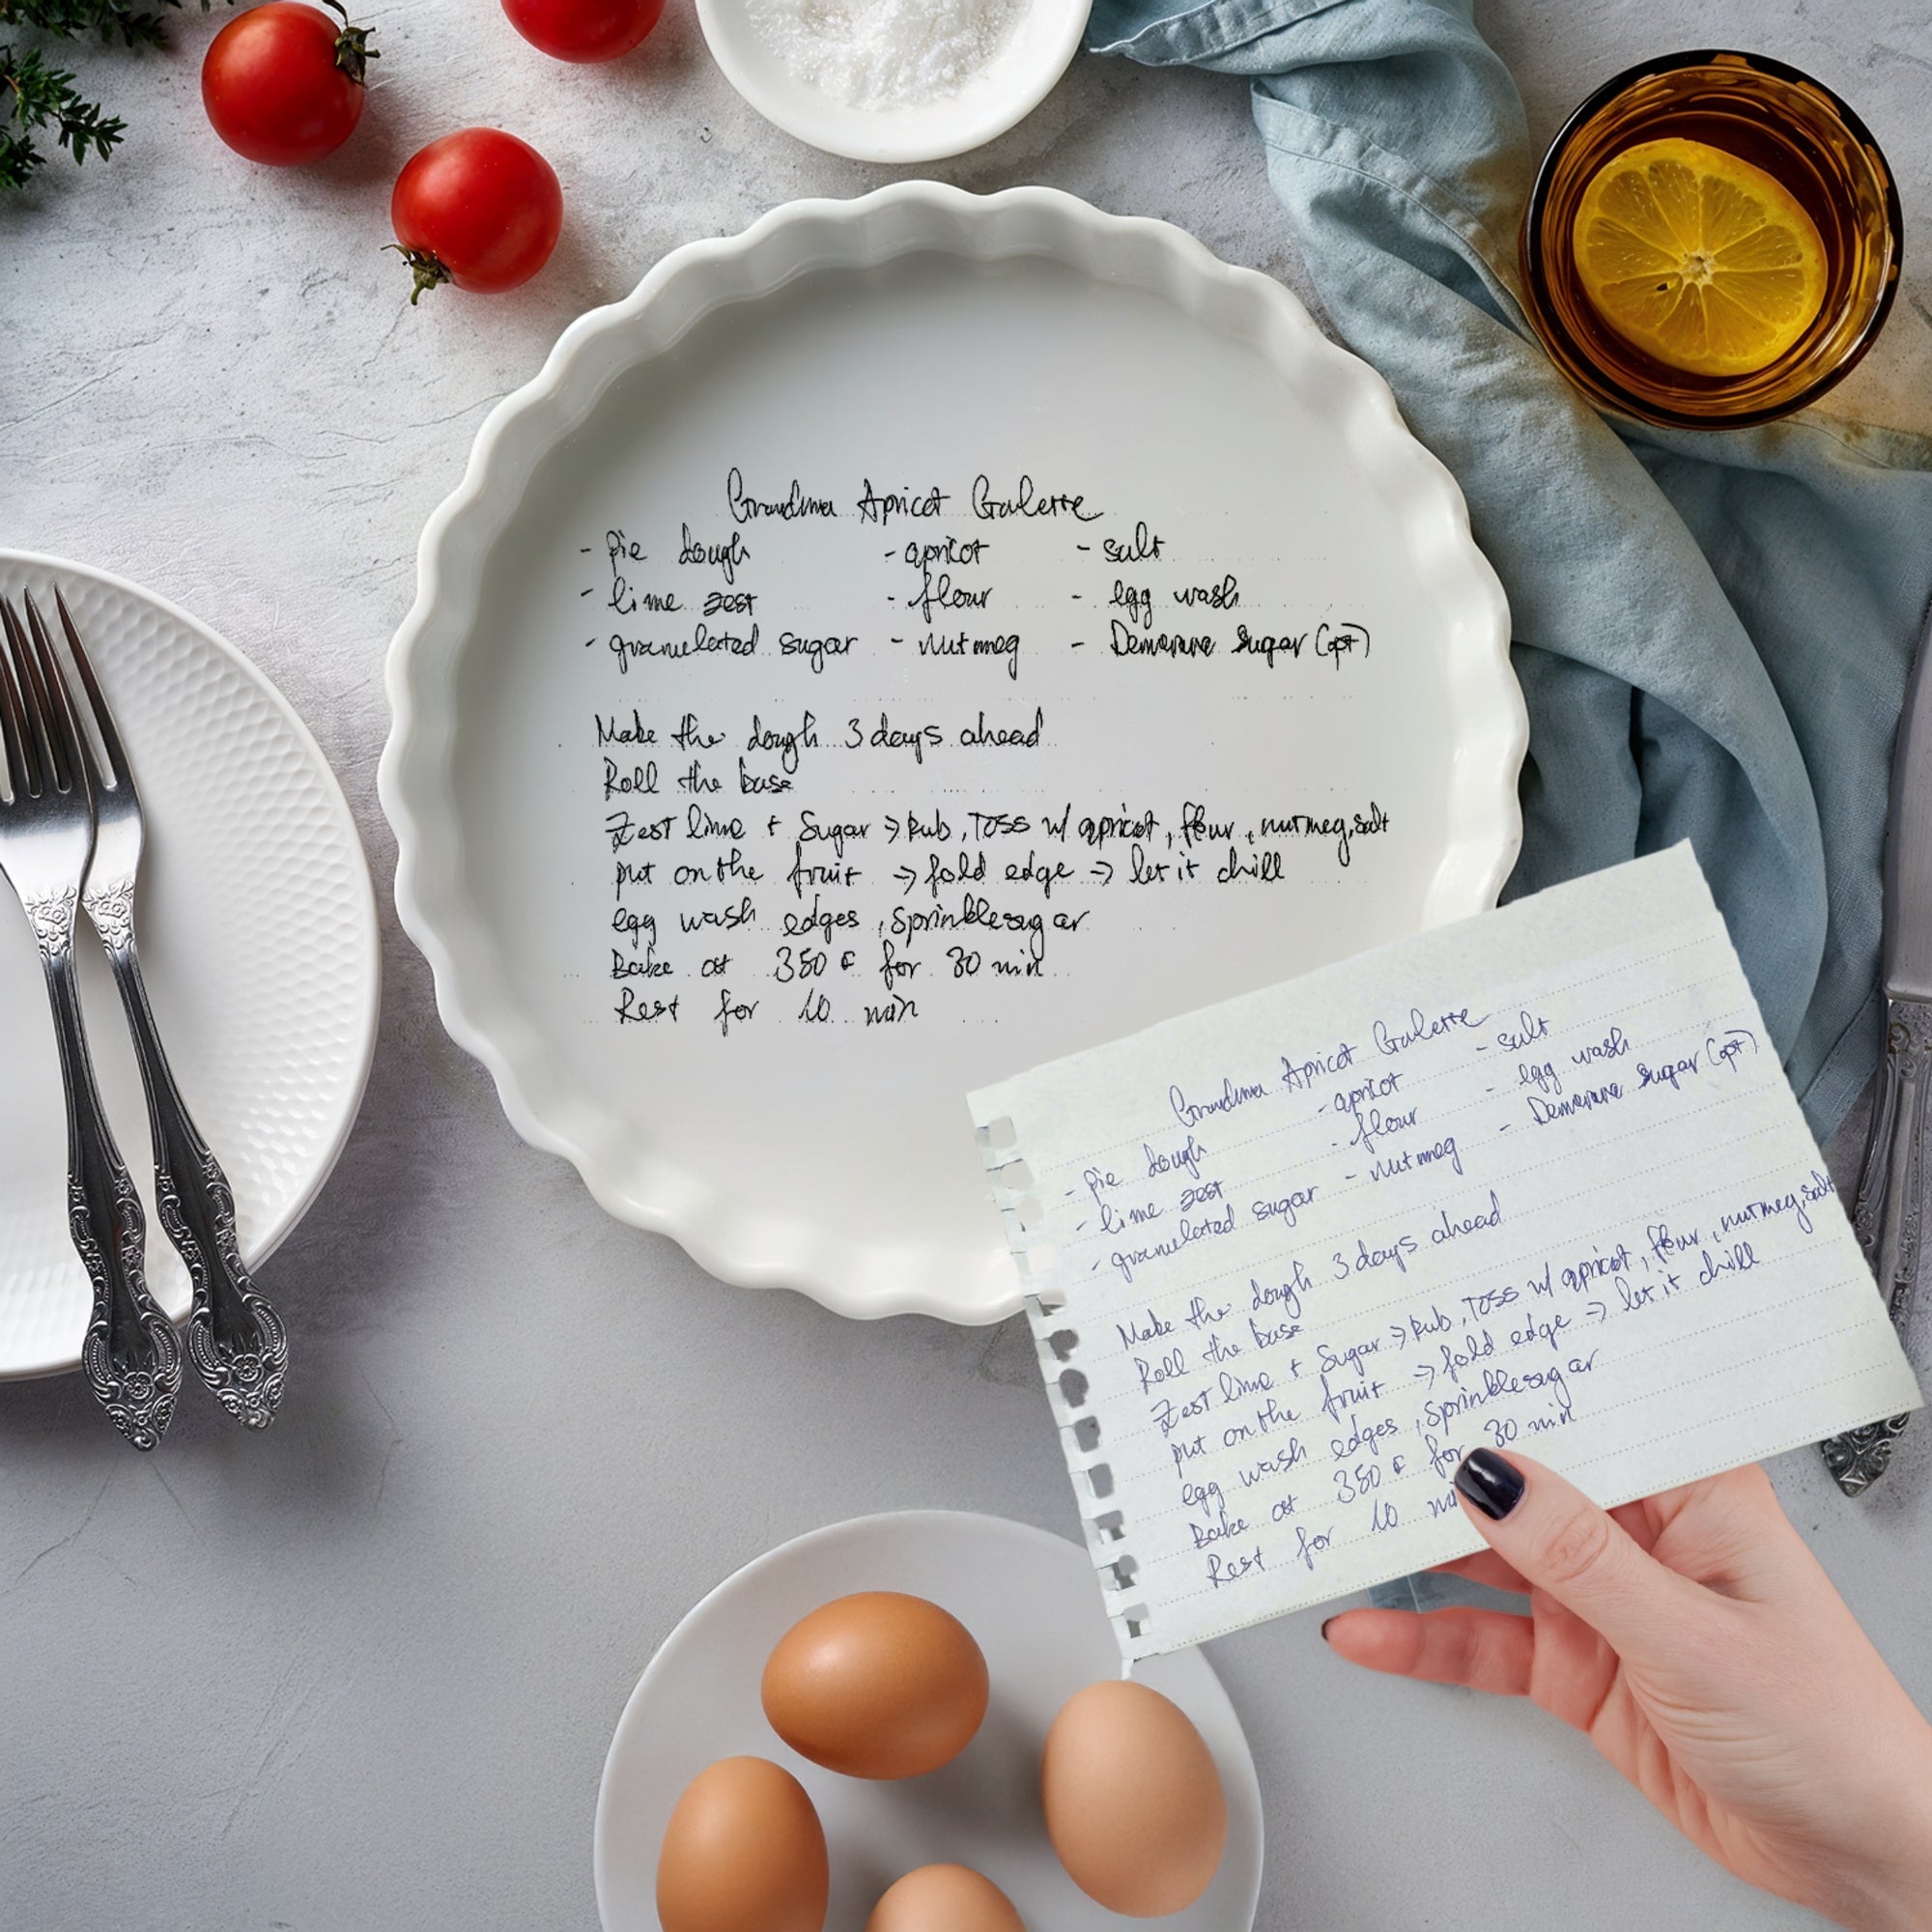 Grandma Apricot Galette
- pie dough - apricot - salt
- lime zest - flour - egg wash
- granulated sugar - nutmeg - Demerara sugar (opt)
Make the dough 3 days ahead
Roll the base
Zest lime + Sugar → Rub, Toss w/ apricot, flour, nutmeg, salt
put on the fruit → fold edge → let it chill
egg wash edges, sprinkle sugar
Bake at 350 F for 30 min
Rest for 10 min
Grandma Apricot Galette
- pie dough - apricot - salt
- lime zest - flour - egg wash
- granulated sugar - nutmeg - Demerara sugar (opt)
Make the dough 3 days ahead
Roll the base
Zest lime + Sugar → Rub, Toss w/ apricot, flour, nutmeg, salt
put on the fruit → fold edge → let it chill
egg wash edges, sprinkle sugar
Bake at 350 F for 30 min
Rest for 10